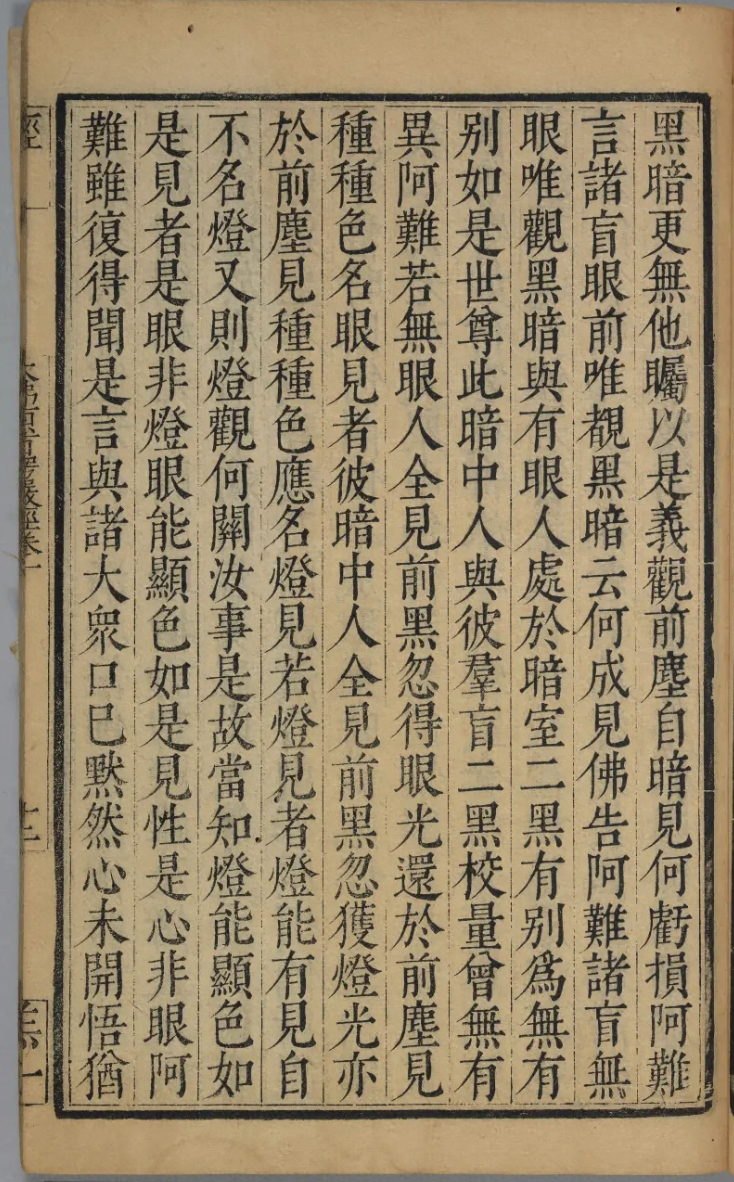 黑暗更無他矚以是義觀前塵自暗見何虧損阿難
言諸盲眼前唯覩黑暗云何成見佛告阿難諸盲無
眼唯觀黑暗與有眼人處於暗室二黑有別爲無有
別如是世尊此暗中人與彼羣盲二黑校量曾無有
異阿難若無眼人全見前黑忽得眼光還於前塵見
種種色名眼見者彼暗中人全見前黑忽獲燈光亦
於前塵見種種色應名燈見若燈見者燈能有見自
不名燈又則燈觀何關汝事是故當知燈能顯色如
是見者是眼非燈眼能顯色如是見性是心非眼阿
難雖復得聞是言與諸大衆口已默然心未開悟猶